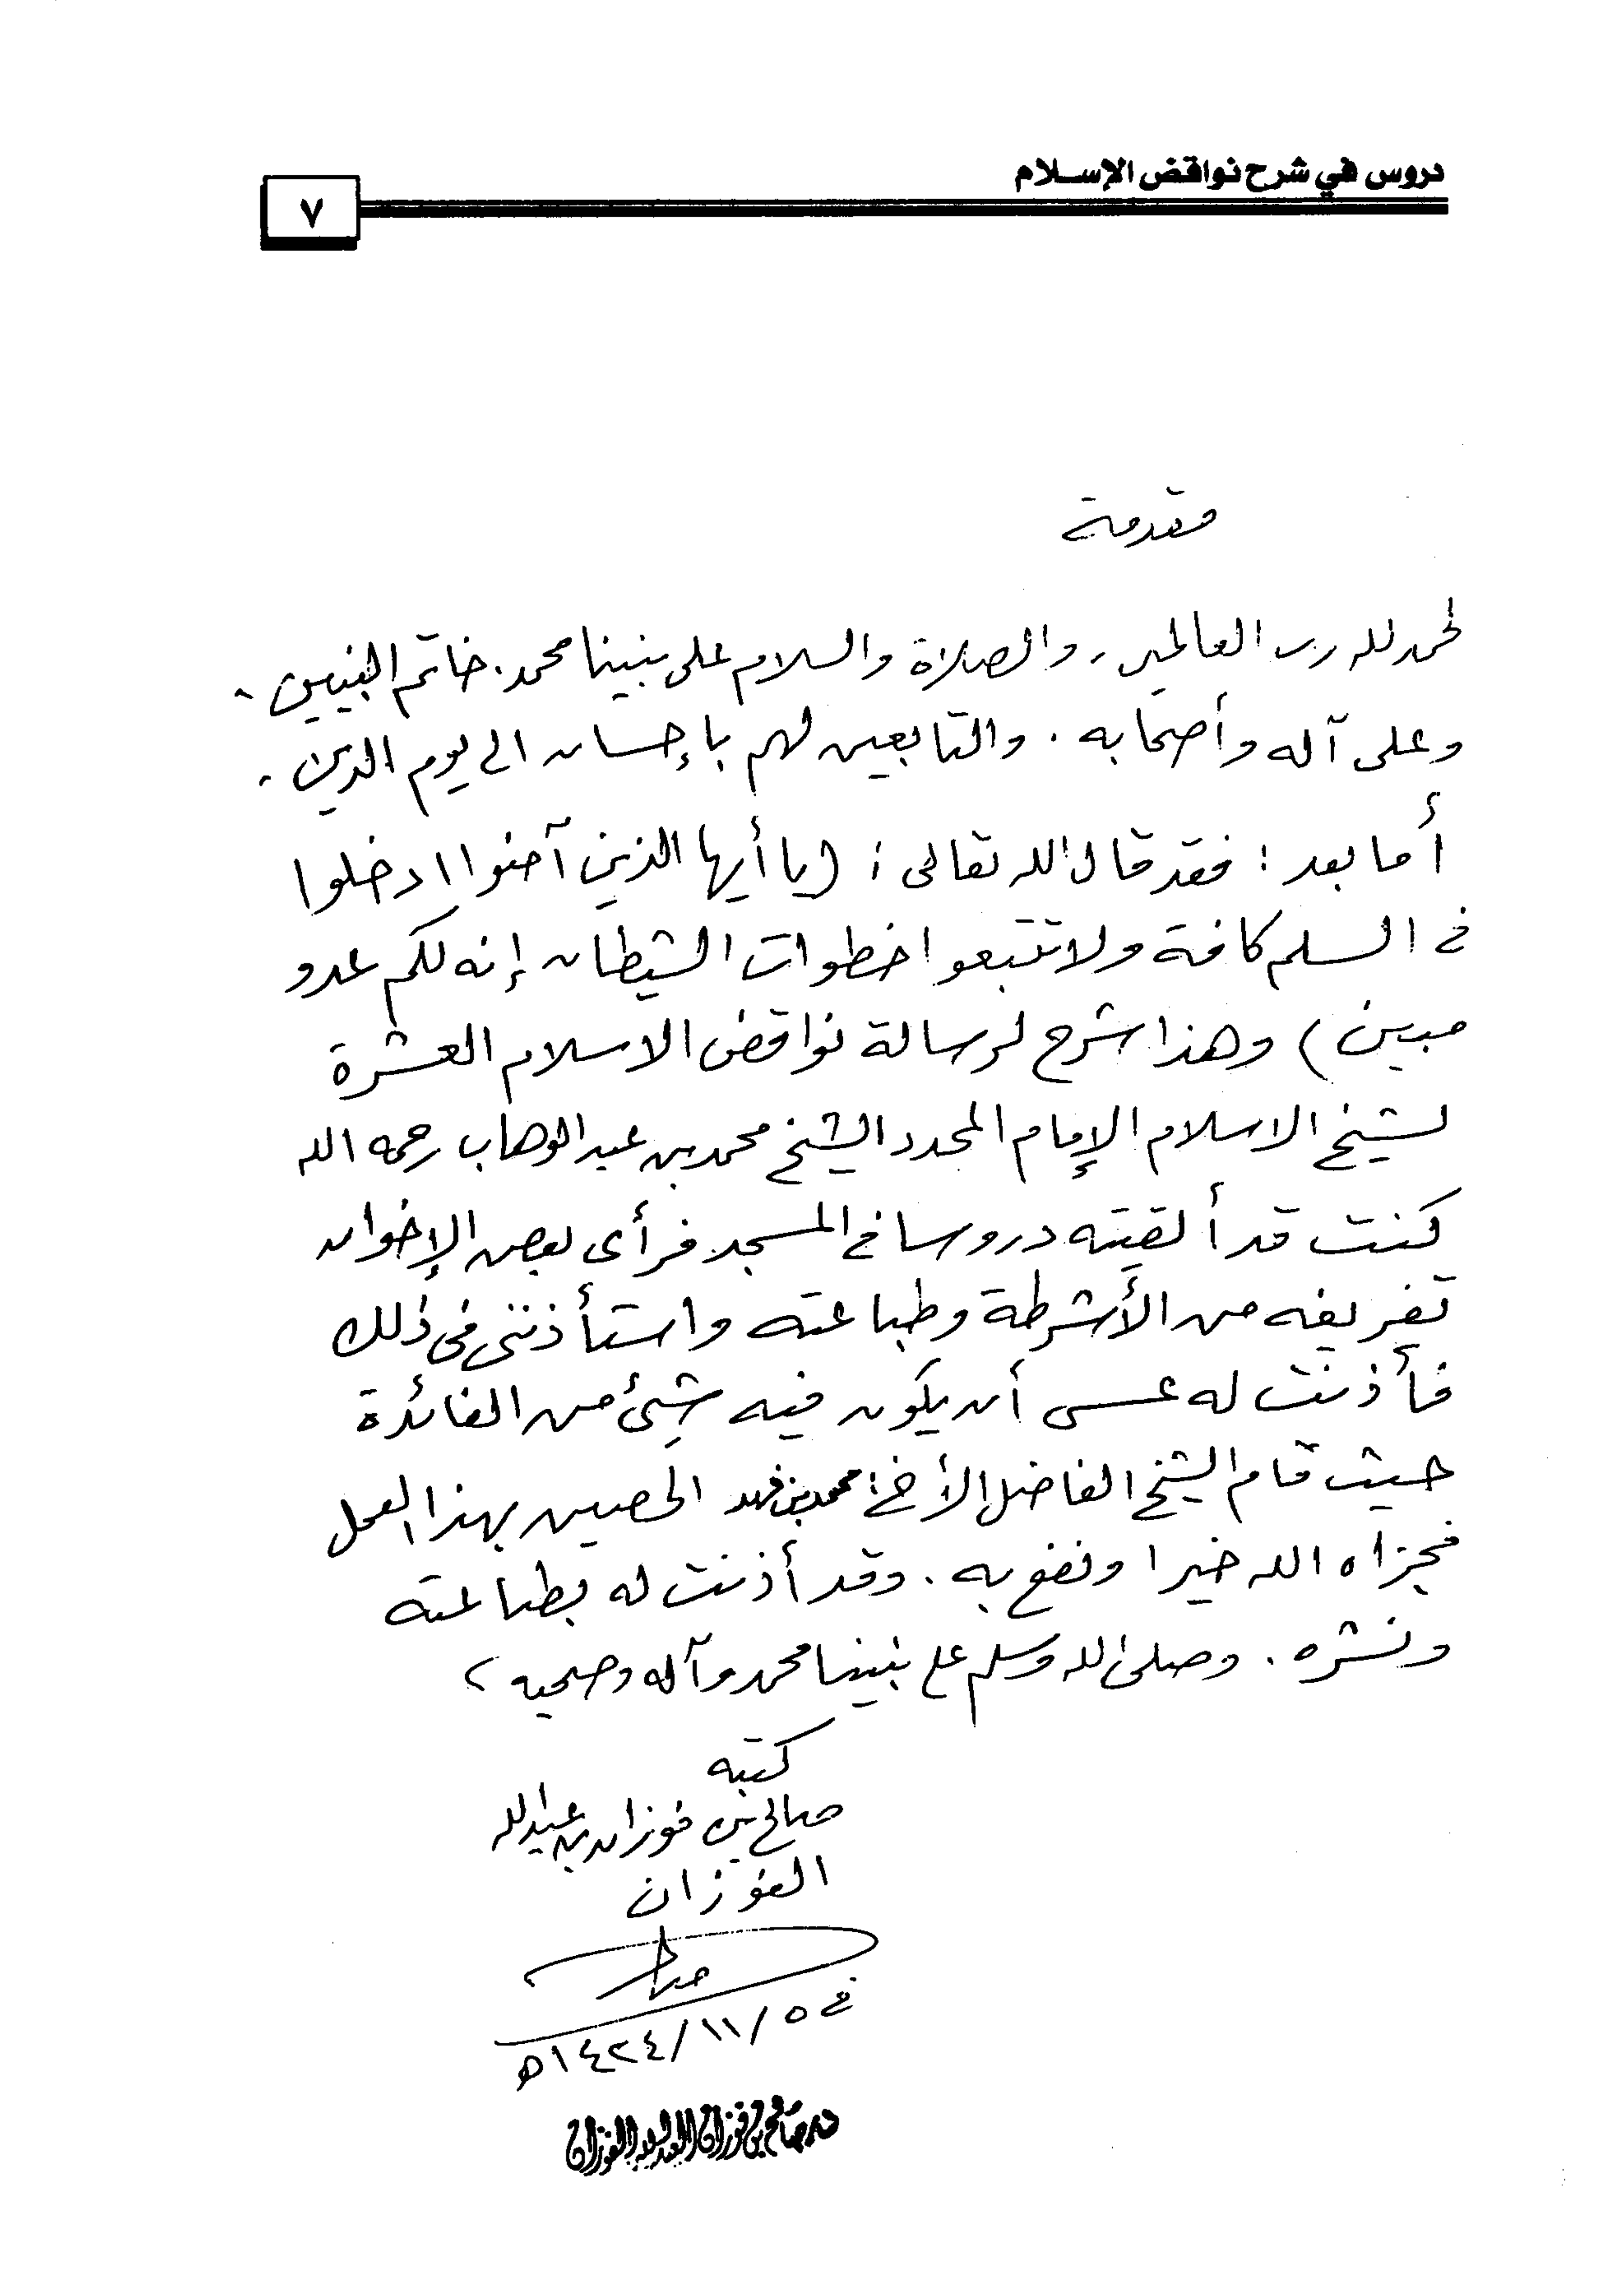 دروس في شرح نواقض الإسلام
٧
مقدمة
لحمد لله رب العالمين، والصلاة والسلام على نبينا محمد. خاتم النبيين.
وعلى آله وأصحابه. والتابعين لهم بإحسان الى يوم الدين.
أما بعد: فقد قال الله تعالى: (يا أيها الذين آمنوا ادخلوا
في السلم كافة ولا تتبعوا خطوات الشيطان إنه لكم عدو
مبين) وهذا شرح لرسالة نواقض الاسلام العشرة
لشيخ الاسلام الإمام المجدد الشيخ محمد بن عبد الوهاب رحمه الله
كنت قد ألقيته دروسا في المسجد فرأى بعض الإخوان
تفريغه من الأشرطة وطباعته واستأذنني في ذلك
فأذنت له عسى أن يكون فيه شيئ من الفائدة
حيث قام الشيخ الفاضل الأخ: محمد بن فهد الحصين بهذا العمل
فجزاه الله خيرا ونفع به. وقد أذنت له بطباعته
ونشره. وصلى الله وسلم على نبينا محمد وآله وصحبه،
كتبه
صالح بن فوزان بن عبد الله
الفوزان
في ٥/١١/١٤٢٤ه
د. صالح بن فوزان العبد الله الفوزان